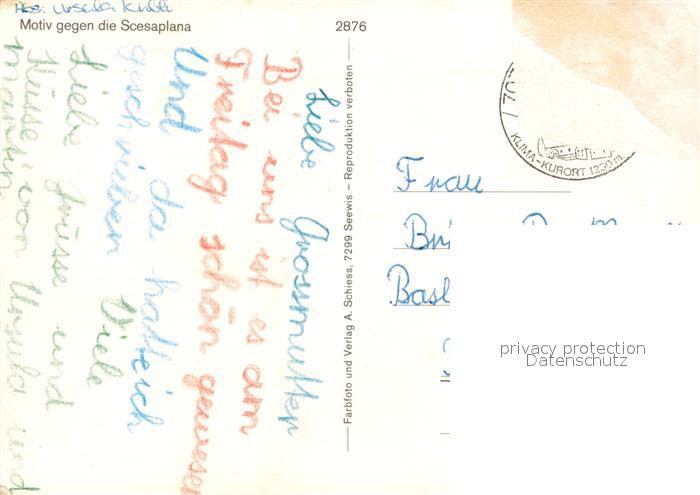 Abs: Ursula
Motiv gegen die Scesaplana
2876
Liebe Grossmutter
Bei uns ist es am
Freitag schön gewesen
Und da hatteich
geschrieben Viele
Liebe grüsse und
Küsse von Ursula und
— Farbfoto und Verlag A. Schiess, 7299 Seewis – Reproduktion verboten —
KLIMA-KURORT 1230 m
Frau
privacy protection
Datenschutz